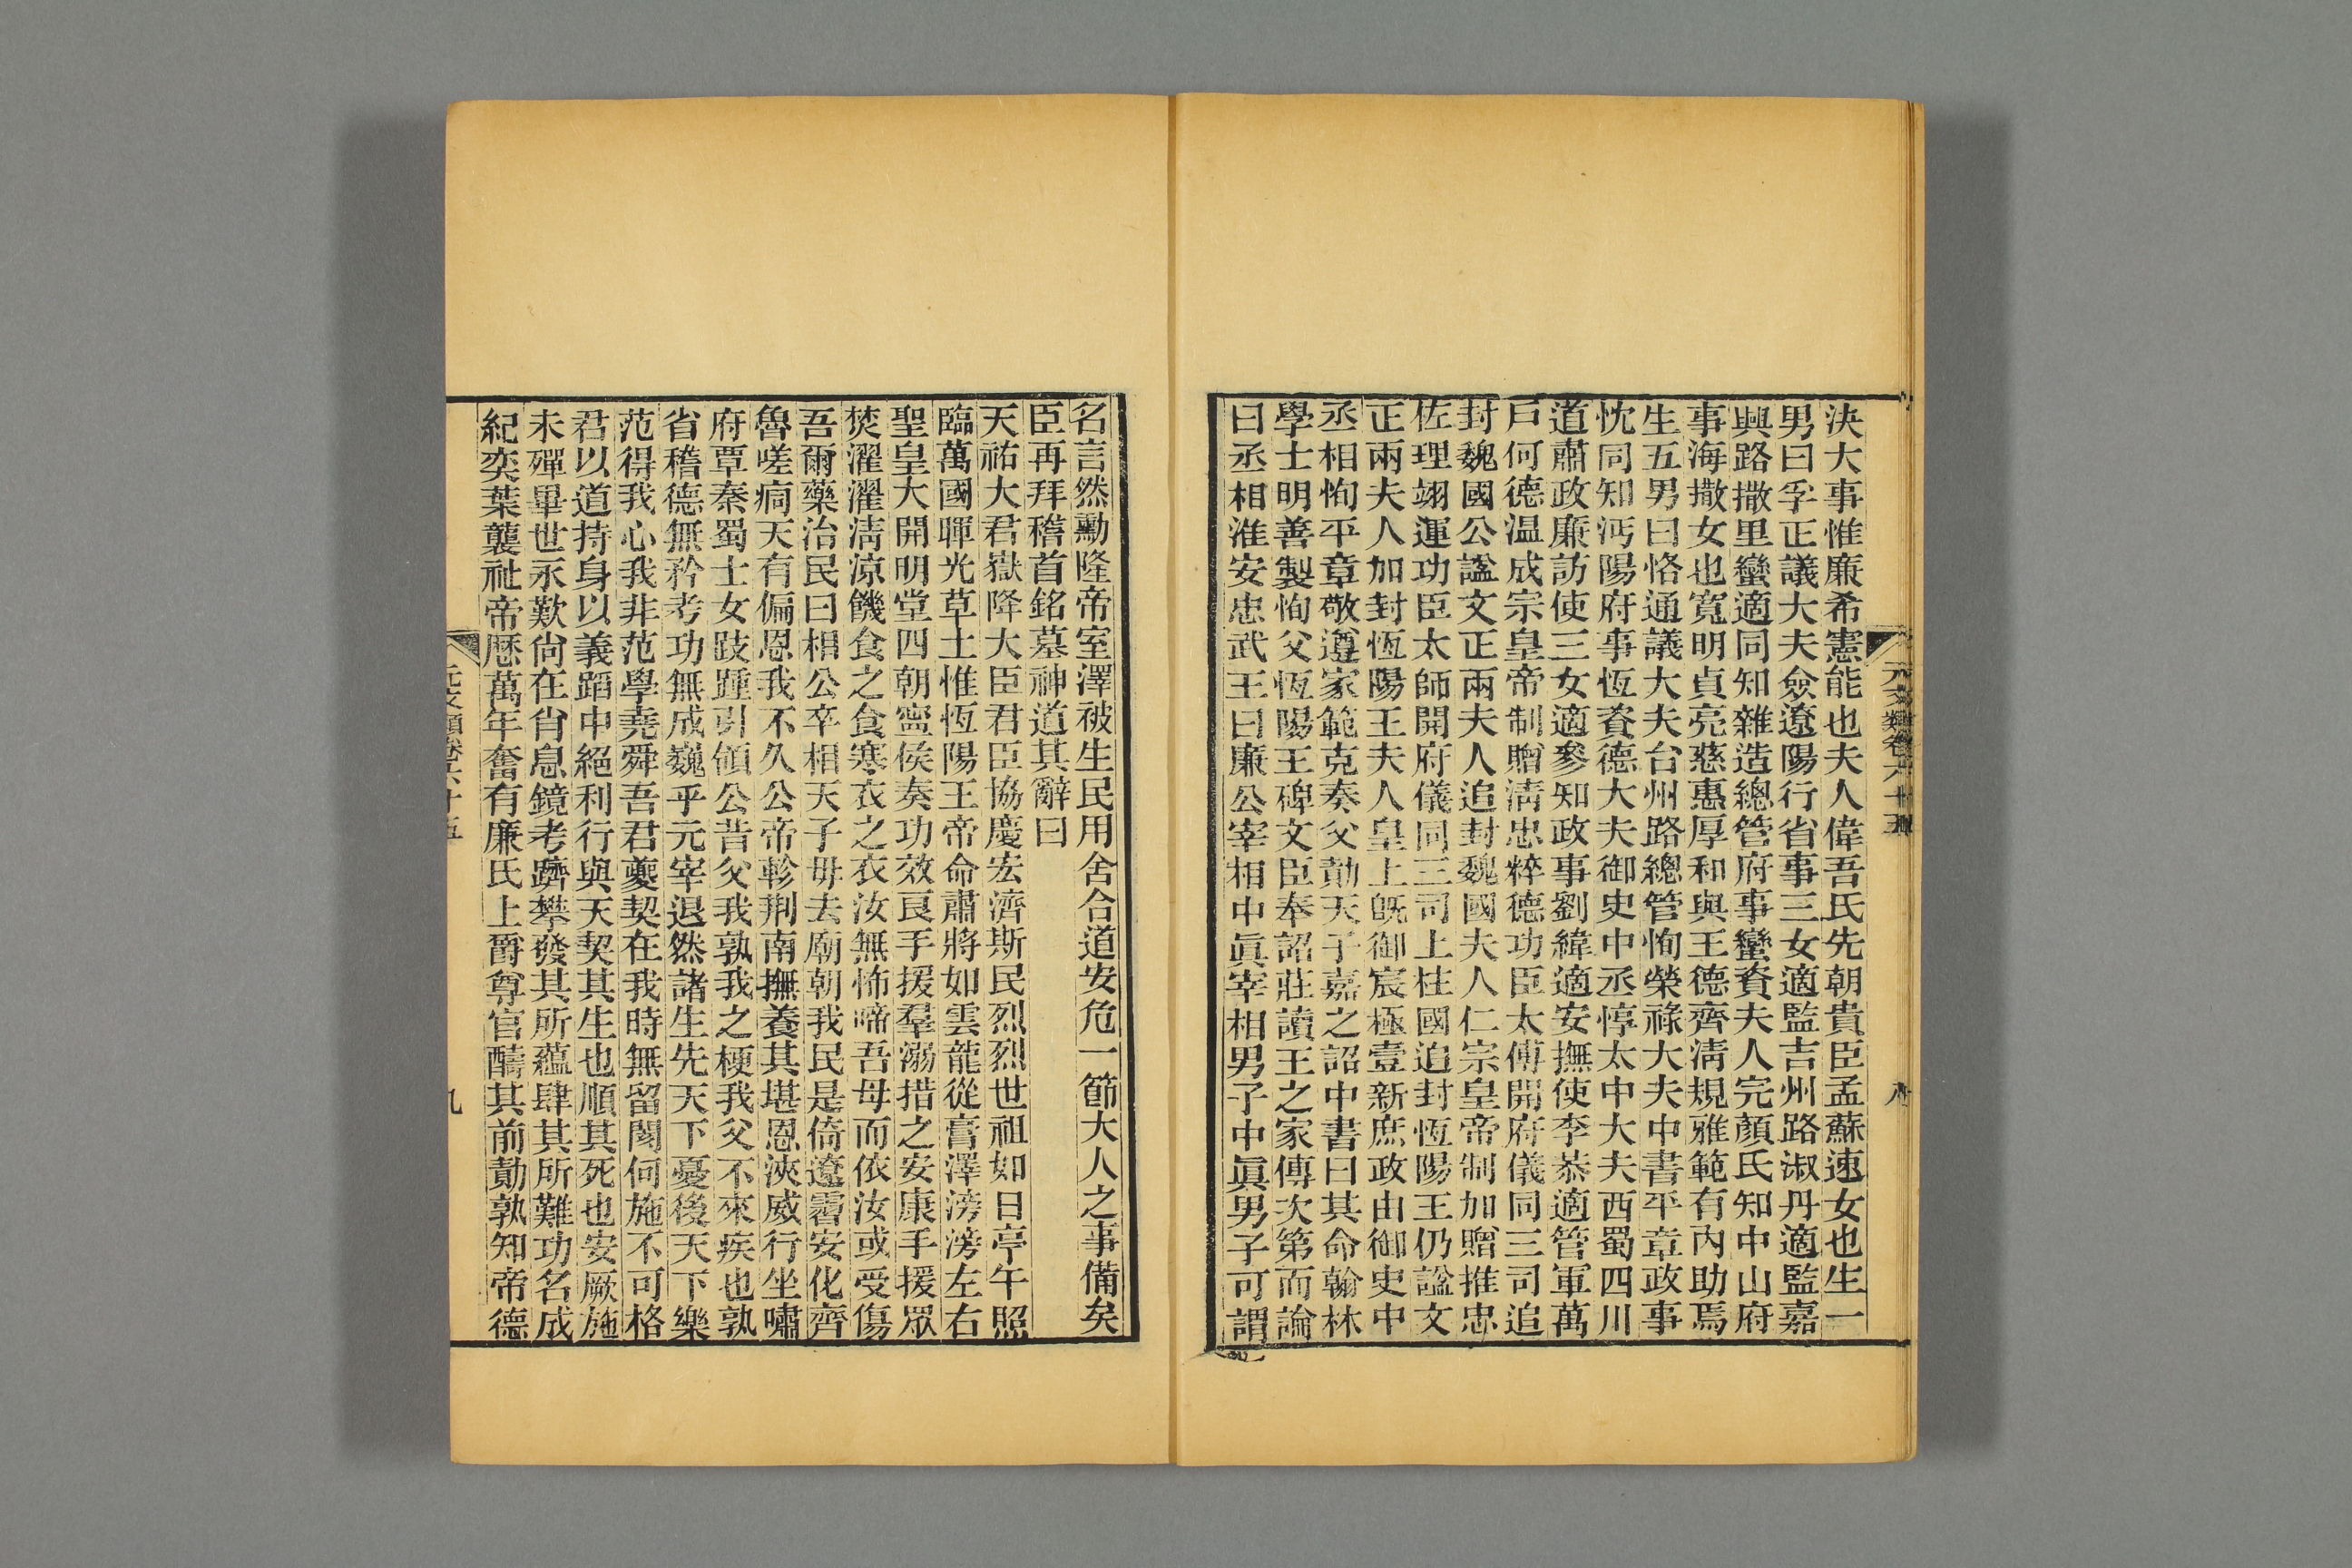 決大事惟廉希憲能也夫人偉吾氏先朝貴臣孟蘇速女也生一
男曰孚正議大夫僉遼陽行省事三女適監吉州路淑丹適監嘉
興路撒里蠻適同知雜造總管府事蠻資夫人完顏氏知中山府
事海撒女也寬明貞亮慈惠厚和與王德齊淸規雅範有內助焉
生五男曰恪通議大夫台州路總管恂榮祿大夫中書平章政事
忱同知沔陽府事恆資德大夫御史中丞惇太中大夫西蜀四川
道肅政廉訪使三女適參知政事劉緯適安撫使李恭適管軍萬
戶何德温成宗皇帝制贈淸忠粹德功臣太傅開府儀同三司追
封魏國公諡文正兩夫人追封魏國夫人仁宗皇帝制加贈推忠
佐理翊運功臣太師開府儀同三司上柱國追封恆陽王仍諡文
正兩夫人加封恆陽王夫人皇上旣御宸極壹新庶政由御史中
丞相恂平章敬遵家範克奏父勣天子嘉之詔中書曰其命翰林
學士明善製恂父恆陽王碑文臣奉詔莊讀王之家傳次第而論
曰丞相淮安忠武王曰廉公宰相中眞宰相男子中眞男子可謂
元文類卷六十五
八
名言然勳隆帝室澤被生民用舍合道安危一節大人之事備矣
臣再拜稽首銘墓神道其辭曰
天祐大君嶽降大臣君臣協慶宏濟斯民烈烈世祖如日亭午照
臨萬國暉光草土惟恆陽王帝命肅將如雲龍從膏澤滂滂左右
聖皇大開明堂四朝寧侯奏功效良手援羣溺措之安康手援眾
焚濯濯淸涼饑食之食寒衣之衣汝無怖啼吾母而依汝或受傷
吾爾藥治民曰相公卒相天子毋去廟朝我民是倚遼霫安化齊
魯嗟痌天有偏恩我不久公帝軫荆南撫養其堪恩浹威行坐嘯
府覃秦蜀士女跂踵引領公昔父我孰我之梗我父不來疾也孰
省稽德無矜考功無成巍乎元宰退然諸生先天下憂後天下樂
范得我心我非范學堯舜吾君夔契在我時無留閡何施不可格
君以道持身以義蹈中絕利行與天契其生也順其死也安厥施
未殫畢世永歎尙在肖息鏡考躋攀發其所蘊肆其所難功名成
紀奕葉襲祉帝厯萬年奮有廉氏上爵尊官醻其前勣孰知帝德
元文類卷六十五
九